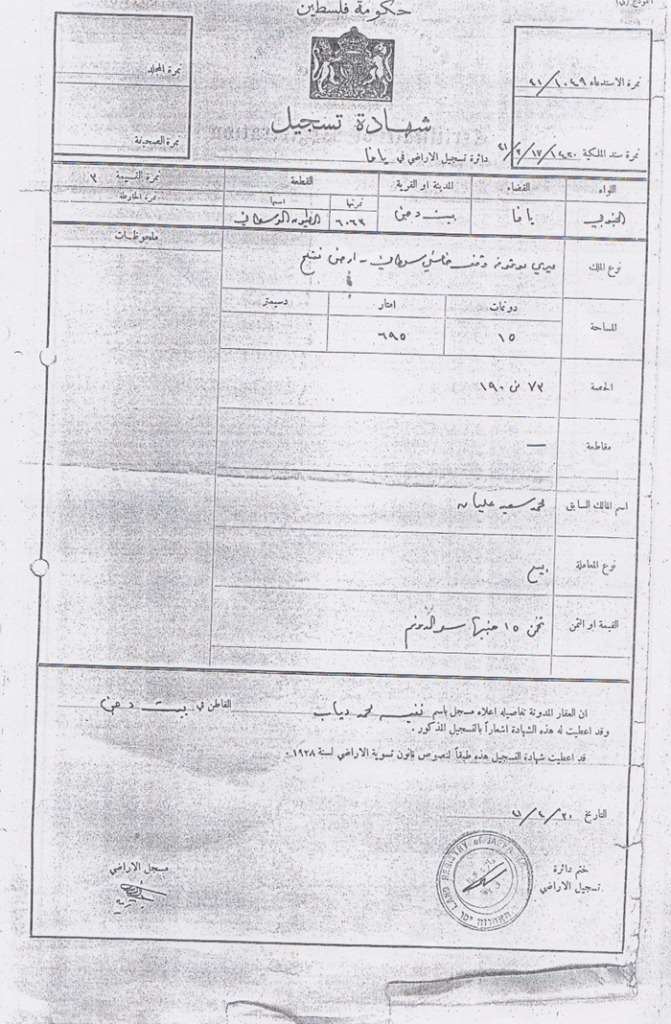 حكومة فلسطين
نمرة المجلد
نمرة الصحيفة
شهادة تسجيل
نمرة الاستدعاء ١٠٤٩/٤١
نمرة سند الملكية
دائرة تسجيل الاراضي في يافا
اللواء
القضاء
المدينة او القرية
القطعة
نمرة القسيمة ٣
نمرتها
اسمها
نمرة الخارطة
الجنوبي
يافا
بيت دجن
٦٠٦٣
ملحوظات
نوع الملك
المساحة
دونمات
امتار
دسيمتر
١٥
٦٩٥
الحصة
٧٣ من ١٩٠
مقاطعة
—
اسم المالك السابق
محمد سعيد عليان
نوع المعاملة
بيع
القيمة او الثمن
ثمن ١٥ جنيها
ان العقار المدونة تفاصيله اعلاه مسجل باسم محمد دياب القاطن في بيت دجن
وقد اعطيت له هذه الشهادة اشعاراً بالتسجيل المذكور .
قد اعطيت شهادة التسجيل هذه طبقاً لنصوص قانون تسوية الاراضي لسنة ١٩٢٨ .
التاريخ
ختم دائرة
تسجيل الاراضي
LAND REGISTRY of JAFFA
مسجل الاراضي